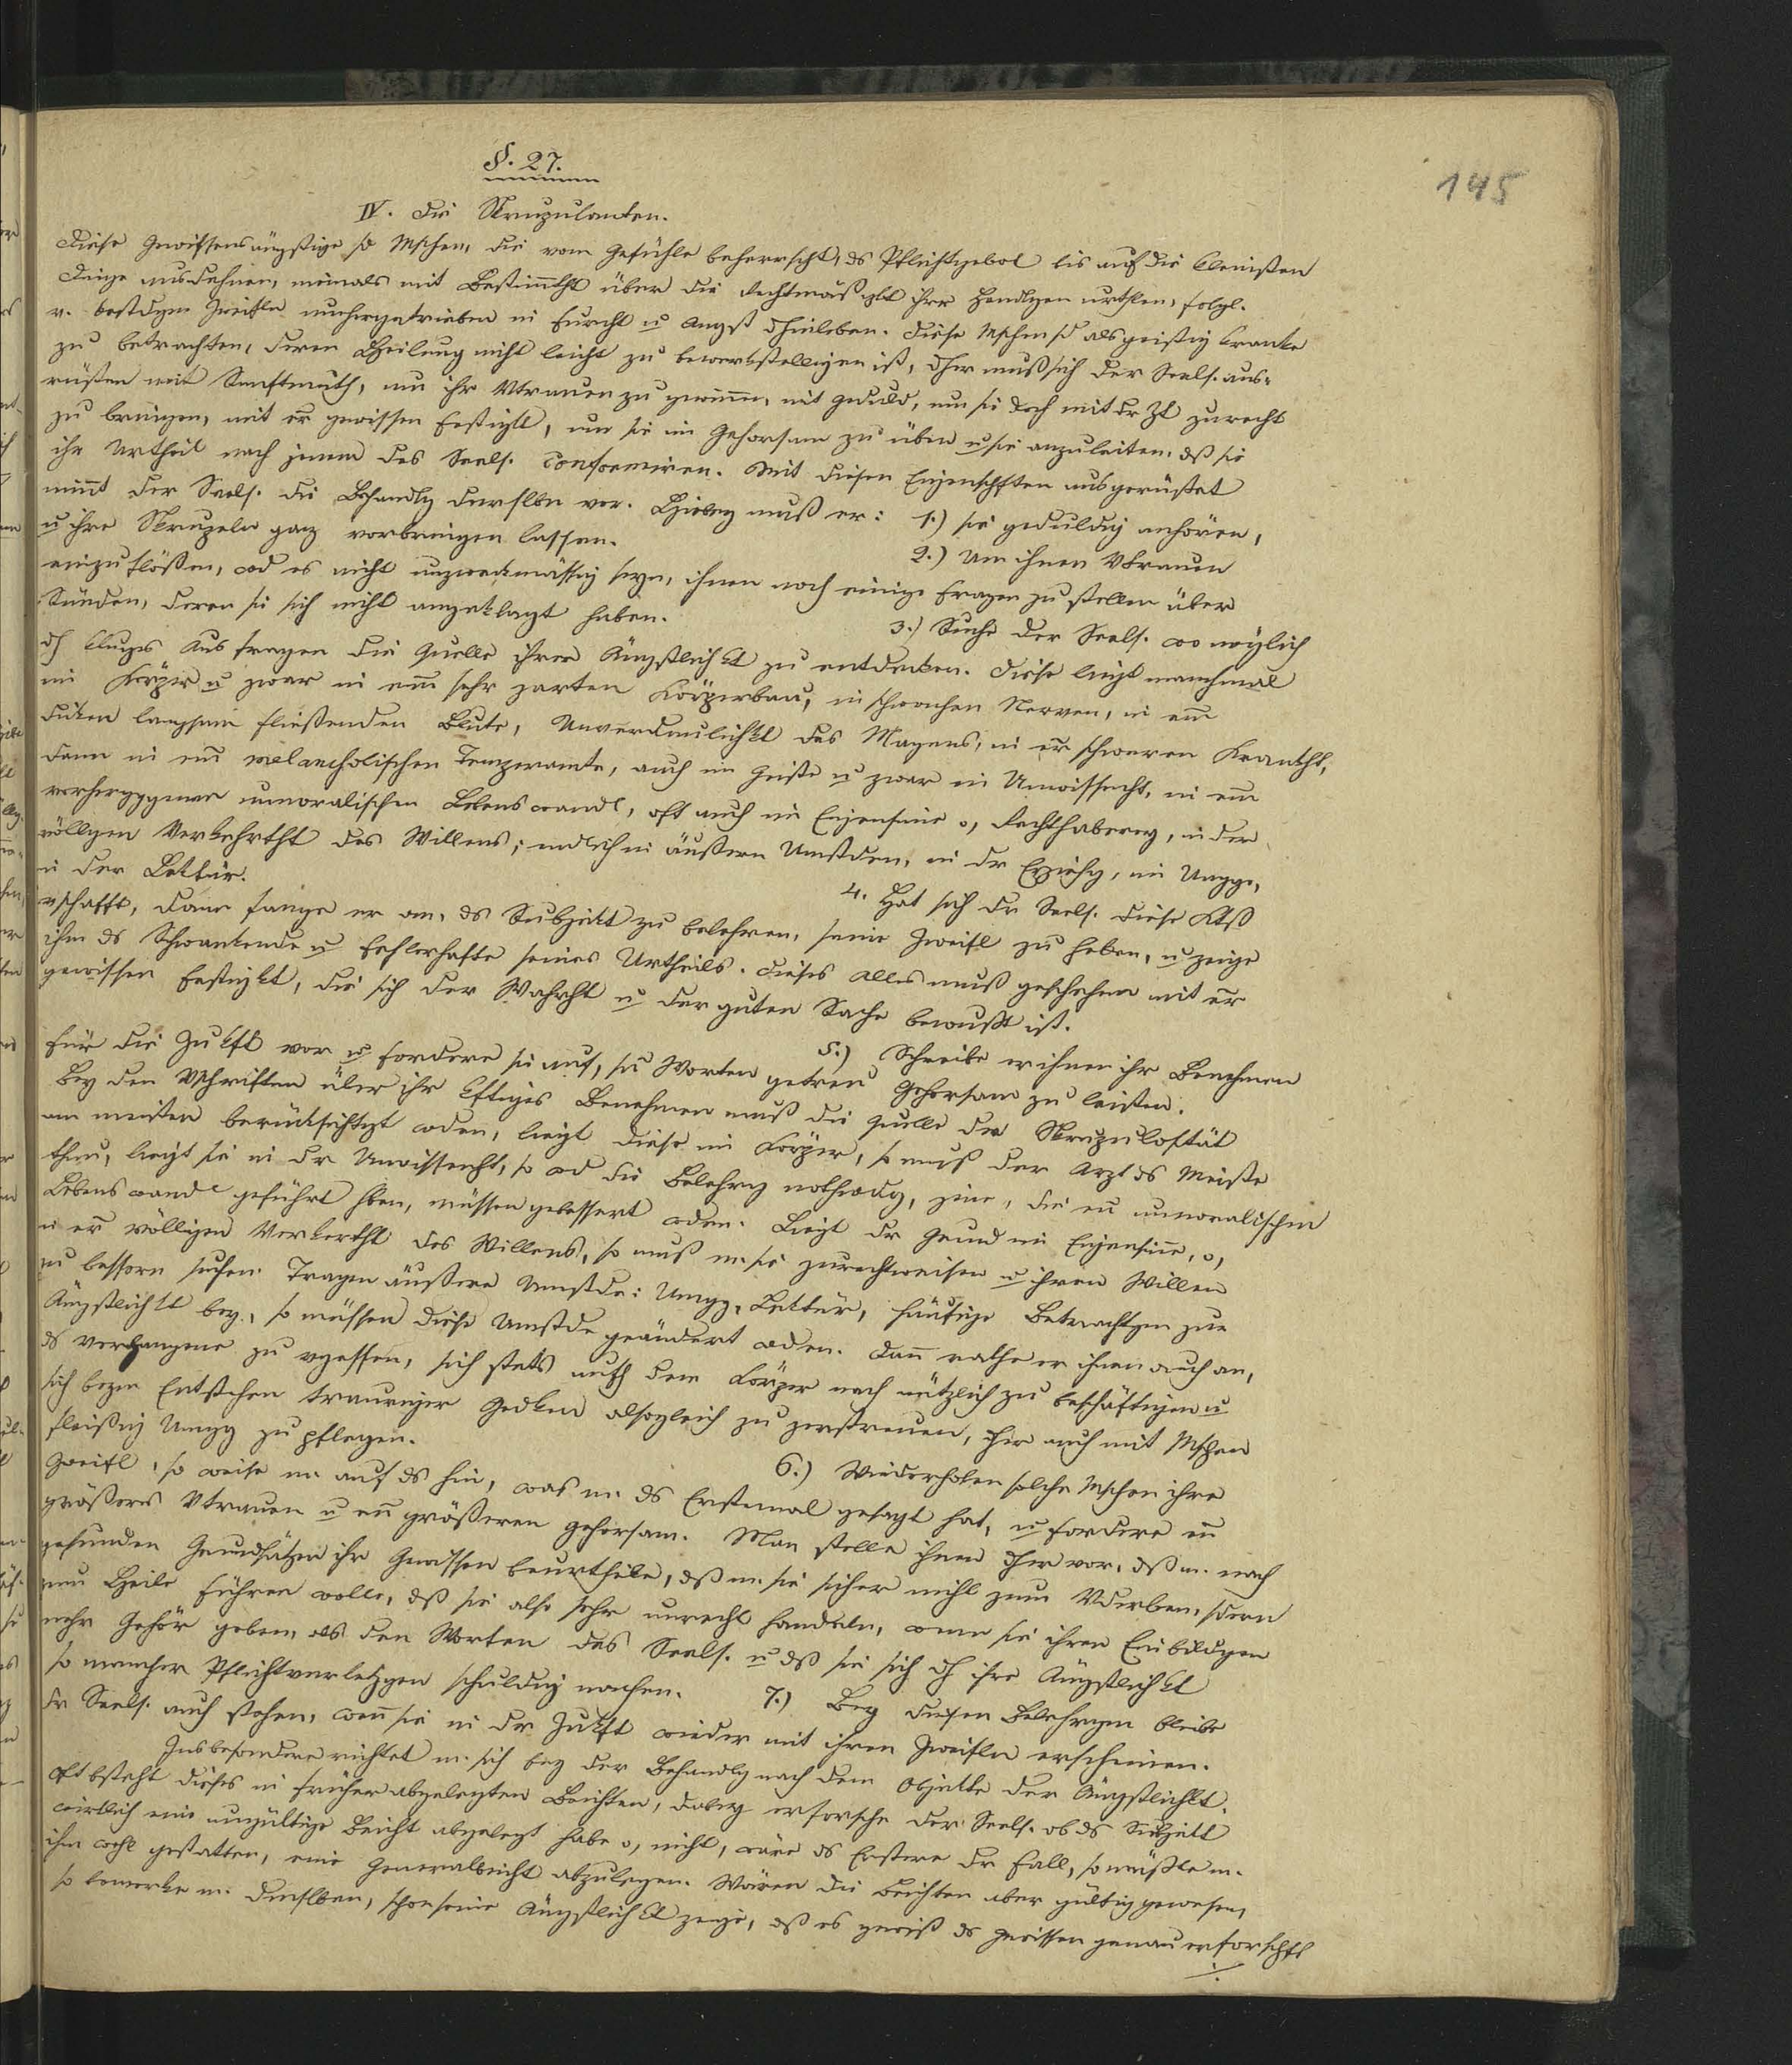 145
§. 27.
IV. Die Skrupulanten.
Diese Gewissensängstige sd Mschen, die vom Gefühle beherrscht, ds Pflichtgebot bis auf die kleinsten
Dinge ausdehnen, niemals mit Bestimmtht über die Rechtmäßigkt ihrer Handlgen urthlen, folgl.
v. bestdgen Zweifeln umhergetrieben in Furcht u Angst dhinleben. Diese Mschen sd als geistig Kranke
zu betrachten, deren Heilung nicht leicht zu bewerkstelligen ist, dher muß sich der Seels. aus-
rüsten mit Sanftmuth, um ihr Vtrauen zu gewinnen, mit Geduld, um sie doch mit dr Zt zurecht
zu bringen, mit er gewissen Festigkt, um sie im Gehorsam zu üben u sie anzuleiten, dß sie
ihr Urtheil nach jenem des Seels. conformiren. Mit diesen Eigenschften ausgerüstet
nimt der Seels. die Behandlg derslbn vor. Hiebey muß er: 1.) sie geduldig anhören,
u ihre Skrupeln ganz vorbringen lassen.
2.) Um ihnen Vtrauen
einzuflößen, wd es nicht unzweckmässig seyn, ihnen noch einige Fragen zu stellen über
Sünden, deren sie sich nicht angeklagt haben.
3.) Suche der Seels. wo möglich
dch kluges Ausfragen die Quelle ihrer Ängstlichkt zu entdecken. Diese liegt manchmal
im Körper u zwar in em sehr zarten Körperbau, in schwachen Nerven, in em
dicken langsam fließenden Blute, Unverdaulichkt des Magens, in er schweren Krankht,
dann in em melancholischen Temperamte, auch im Geiste u zwar in Unwissenht, in em
vorhergggenen unmoralischen Lebenswandl, oft auch im Eigensinne o, Rechthaberey, in der
völligen Verkehrtht des Willens; endlich in äußern Umstden, in dr Erziehg, im Umgge,
in der Lektür.
4. Hat sich dr Seels. diese Ktß
vschafft, dann fange er an, ds Subjekt zu belehren, seine Zweifl zu heben, u zeige
ihm ds Schwankende u Fehlerhafte seines Urtheils. Dieses alles muß geschehen mit er
gewissen Festigkt, die sich der Wahrht u der guten Sache bewußt ist.
5.) Schreibe er ihnen ihr Benehmen
für die Zukft vor u fordere sie auf, sn Worten getreu Gehorsam zu leisten.
Bey den Vschriften über ihr kftiges Benehmen muß die Quelle der Skrupulostät
am meisten berücksichtigt wden, liegt diese im Körper, so muß der Arzt ds Meiste
thun, liegt sie in dr Unwissenht, so wd die Belehrg nothwdg, jene, die en unmoralischen
Lebenswandl geführt hben, müssen gebessert wden. Liegt dr Grund im Eigensinne, o,
in er völligen Verkertht des Willens, so muß m. sie zurechtweisen u ihren Willen
zu bessern suchen. Tragen äußere Umstde: Umgg, Lektür, häufige Betrachtgen zur
Ängstlichkt bey, so müssen diese Umstde geändert wden. Dann rathe er ihnen auch an,
ds Vergangene zu vgessen, sich stets auch dem Körper nach nützlich zu beschäftigen u
sich bezm Entstehen trauriger Gedken alsogleich zu zerstreuen, dher auch mit Mschen
fleißig Umgg zu pflegen.
6.) Wiederholen solche Mschen ihre
Zweifl, so weise m. auf ds hin, was m. ds Erstemal gesagt hat, u fordere ein
größeres Vtrauen u en größeren Gehorsam. Man stelle ihnen dher vor, dß m. nach
gesunden Grundsätzen ihr Gewissen beurtheile, dß m. sie sicher nicht zum Vderben, sdern
zum Heile führen wolle, dß sie also sehr unrecht handeln, wenn sie ihren Einbildgen
mehr Gehör geben, als den Worten des Seels. u dß sie sich dch ihre Ängstlichkt
so mancher Pflichtverletzgen schuldig machen.
7.) Bey diesen Belehrgen bleibe
dr Seels. auch stehen, wenn sie in dr Zukft wieder mit ihren Zweifeln erscheinen.
Insbesondere richtet m. sich bey der Behandlg nach dem Objekte der Ängstlichkt.
Oft bsteht dieses in früher abgelegten Beichten, dabey erforsche der Seels. ob ds Subjekt
wirklich eine ungültige Beicht abgelegt habe o, nicht, wäre ds Erstere dr Fall, so müßte m.
ihm wohl gestatten, eine Generalbeicht abzulegen. Wären die Beichten aber gültig gewesen,
so bemerke m. demslben, schon seine Ängstlichkt zeige, dß es gewiß ds Gewissen genau erforscht